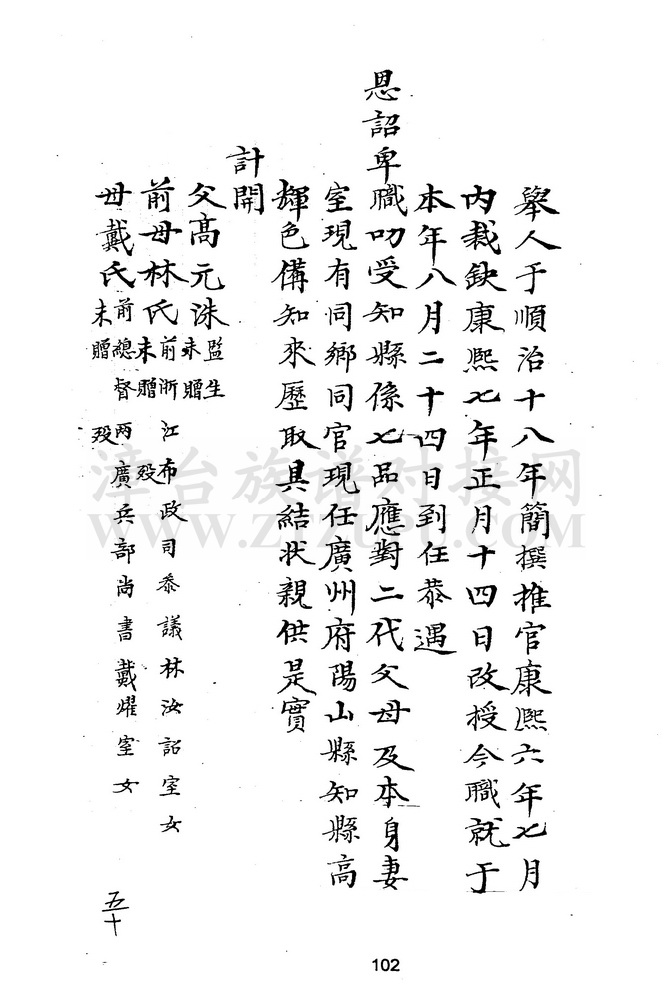 舉人于順治十八年簡撰推官康熙六年七月
內裁缺康熙七年正月十四日改授今職就于
本年八月二十四日到任恭遇
恩詔卑職叨受知縣係七品應對二代父母及本身妻
室現有同鄉同官現任廣州府陽山縣知縣高
輝色備知來歷取具結狀親供是實
計開
父高元洙監生未贈
前母林氏前浙江布政司叅議林汝詔室女未贈歿
母戴氏前總督兩廣兵部尚書戴燿室女未贈歿
五十
102
漳台族谱对接网
WWW.ZTZUPU.COM